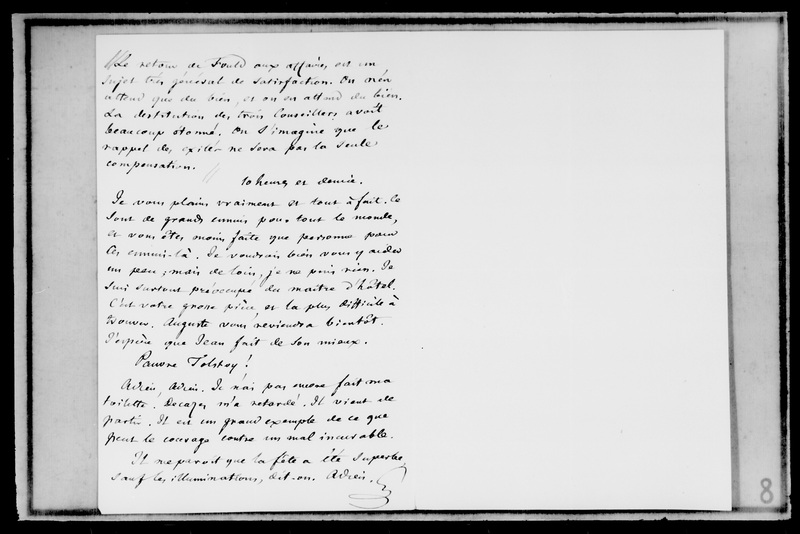 Le retour de Fould aux affaires est un
sujet très général de satisfaction. On n'en
attend que du bien, et on en attend du bien.
La destitution des trois Conseillers avait
beaucoup étonné. On s'imagine que le
rappel des exilés ne sera pas la seule
compensation.
10 heures et demie.
Je vous plains vraiment et tout à fait. Ce
sont de grands ennuis pour tout le monde,
et vous êtes moins faite que personne pour
ces ennuis-là. Je voudrais bien vous y aider
un peu ; mais de loin, je ne puis rien. Je
suis surtout préoccupé du maître d'hôtel.
C'est votre grosse pièce, et la plus difficile à
trouver. Auguste vous reviendra bientôt.
J'espère que Jean fait de son mieux.
Pauvre Tolstoy !
Adieu, Adieu. Je n'ai pas encore fait ma
toilette. Decazes m'a retardé. Il vient de
partir. Il est un grand exemple de ce que
peut le courage contre un mal incurable.
Il me paroit que la fête a été superbe
sauf les illuminations, dit-on. Adieu.
8